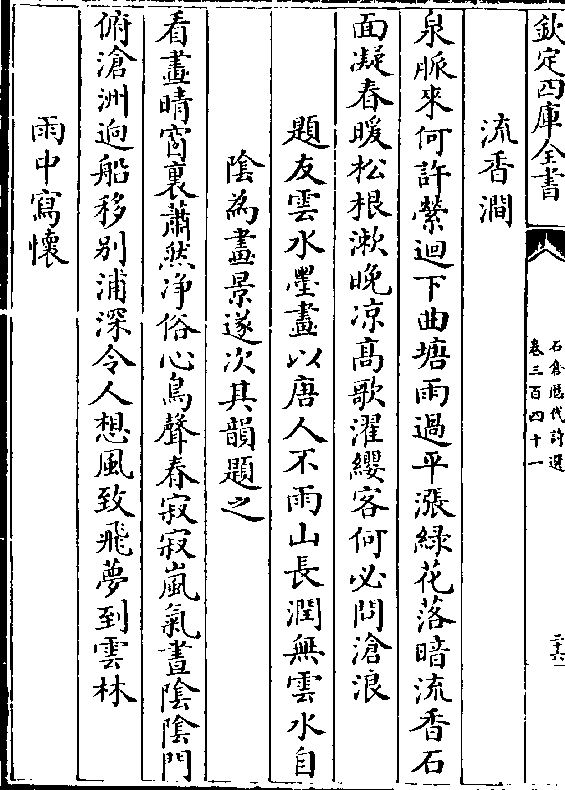 欽定四庫全書
石倉歷代詩選
卷三百四十一
流香澗
泉脈來何許縈迴下曲塘雨過平漲緑花落暗流香石
面凝春暖松根漱晚凉髙歌濯纓客何必問滄浪
題友雲水墨畫以唐人不雨山長潤無雲水自
陰為畫景遂次其韻題之
看畫晴窗裏蕭然净俗心鳥聲春寂寂嵐氣晝陰陰門
俯滄洲逈船移别浦深令人想風致飛夢到雲林
雨中寫懷